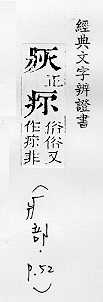 經典文字辨證書
正
俗俗又
作非
(疒部. P.52)